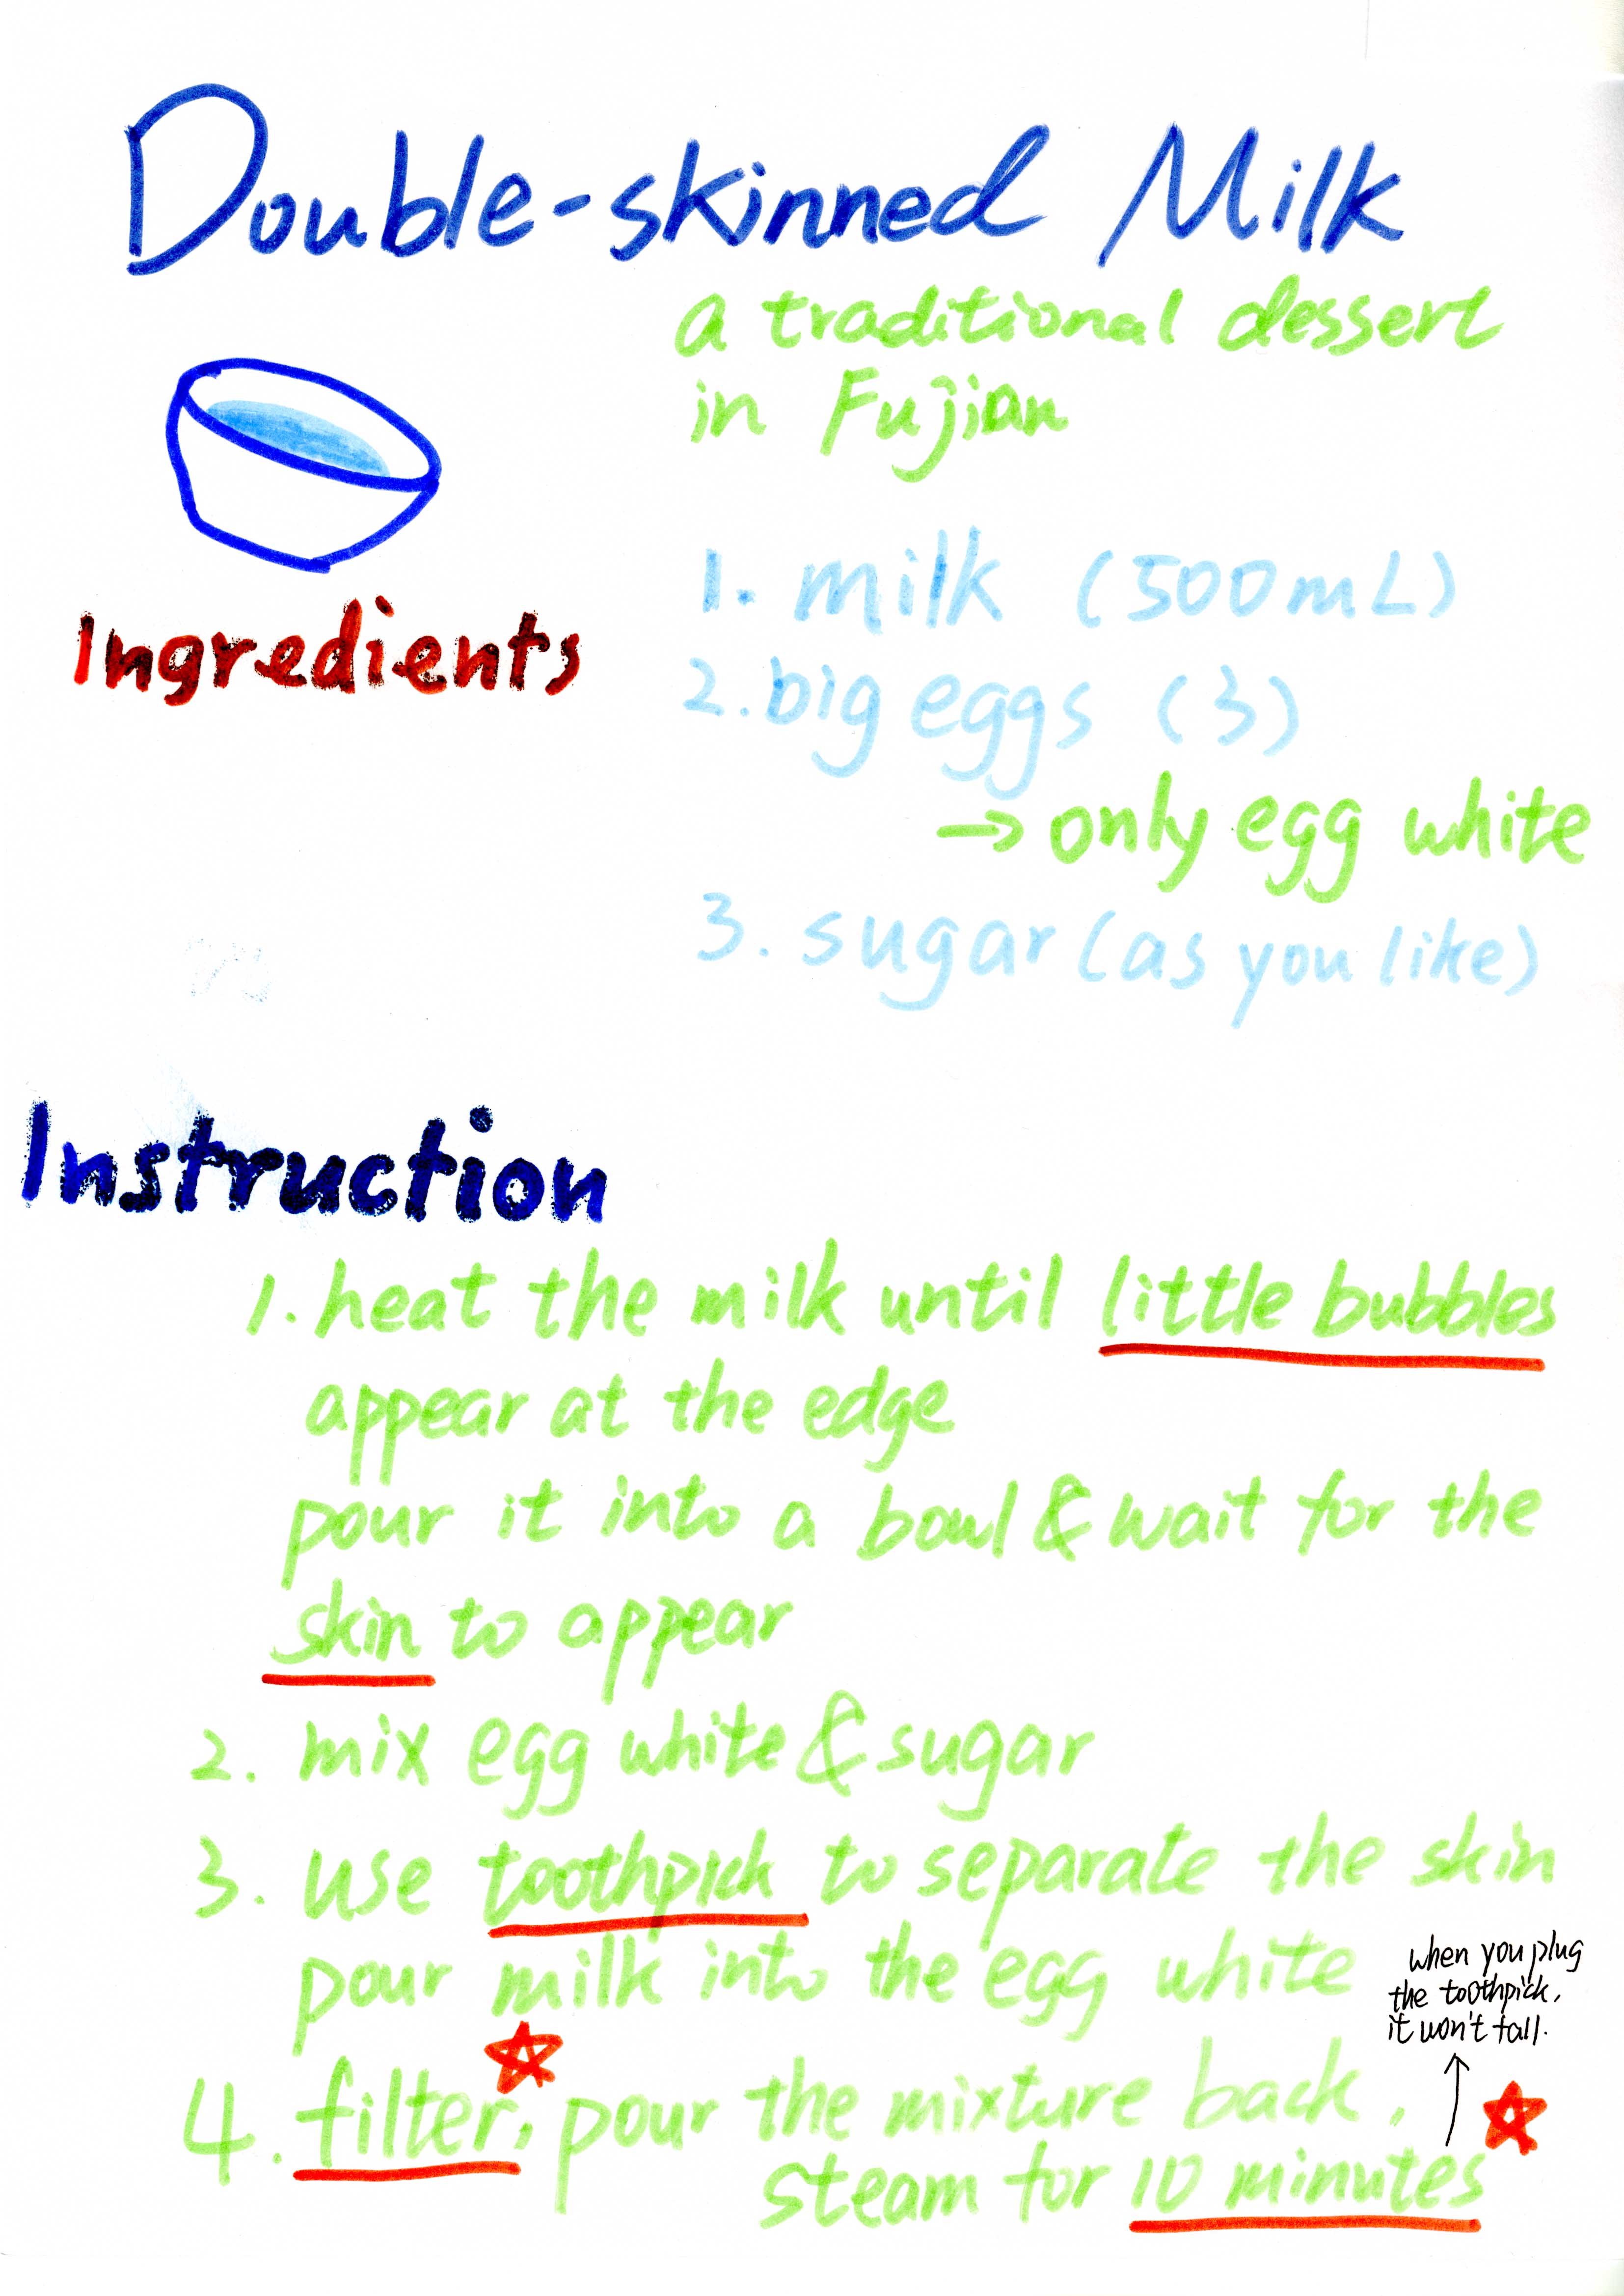 Double-skinned Milk
a traditional dessert
in Fujian
Ingredients
1. milk (500mL)
2. big eggs (3)
→ only egg white
3. sugar (as you like)
Instruction
1. heat the milk until little bubbles
appear at the edge
pour it into a bowl & wait for the
skin to appear
2. mix egg white & sugar
3. use toothpick to separate the skin
pour milk into the egg white
when you plug
the toothpick,
it won't fall.
4. filter, pour the mixture back,
steam for 10 minutes